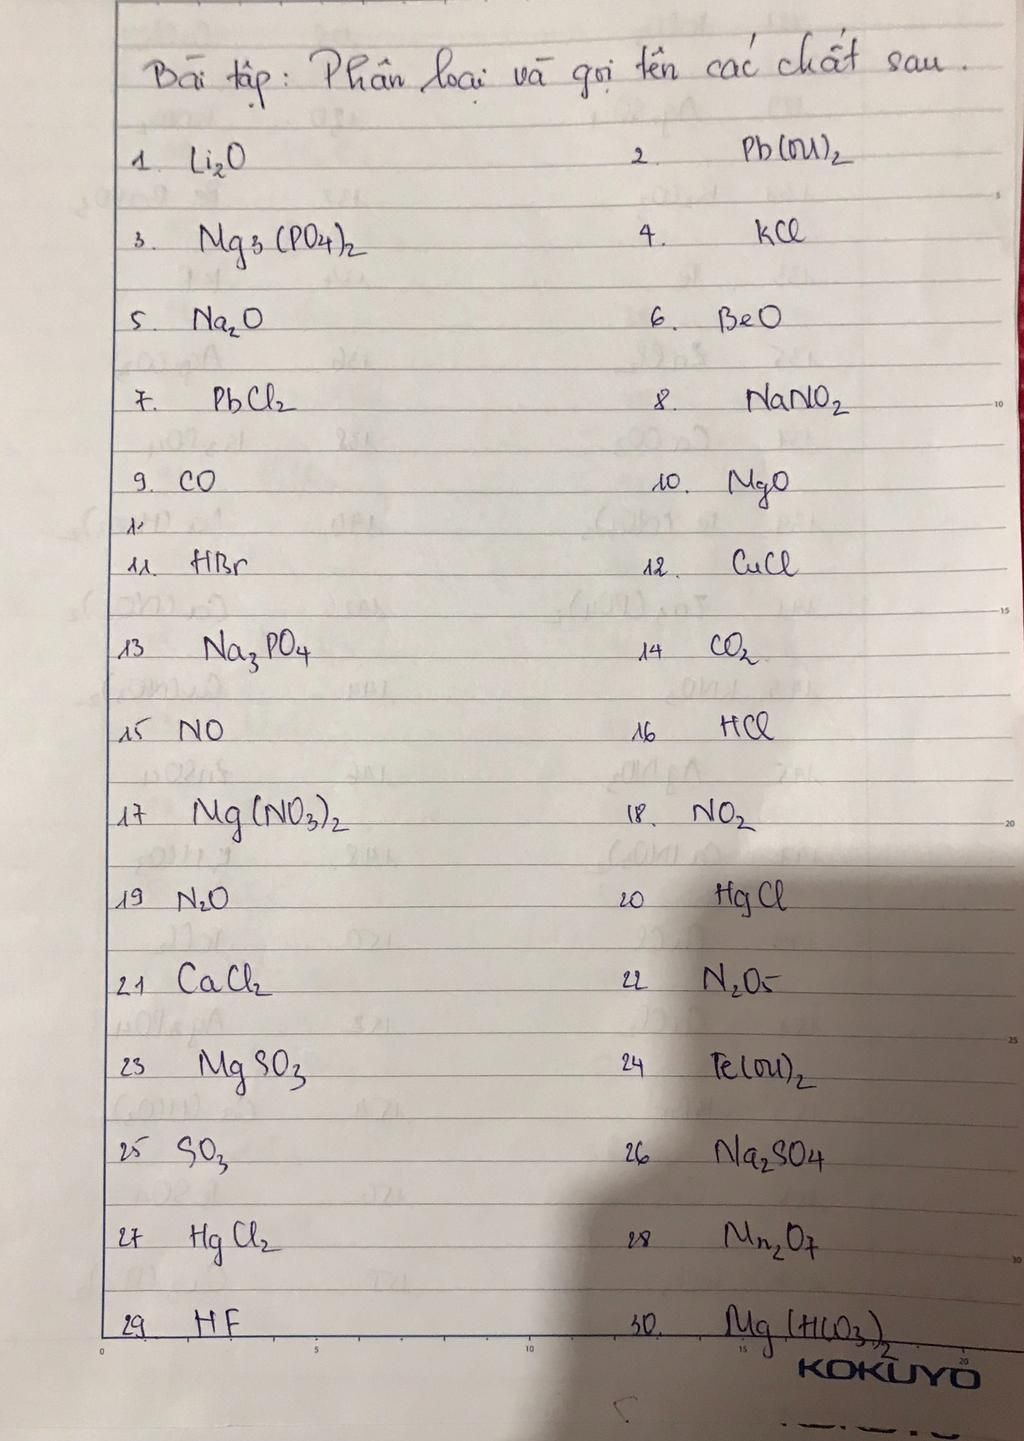 Bài tập: Phân loại và gọi tên các chất sau.
1. Li2O 2. Pb(OH)2
3. Mg3(PO4)2 4. KCl
5. Na2O 6. BeO
7. PbCl2 8. NaNO2
9. CO 10. MgO
11. HBr 12. CuCl
13 Na3PO4 14 CO2
15 NO 16 HCl
17 Mg(NO3)2 18. NO2
19 N2O 20 HgCl
21 CaCl2 22 N2O5
23 MgSO3 24 Fe(OH)2
25 SO3 26 Na2SO4
27 HgCl2 28 Mn2O7
29 HF 30. Mg(HCO3)2
0 5 10 15 20
KOKUYO